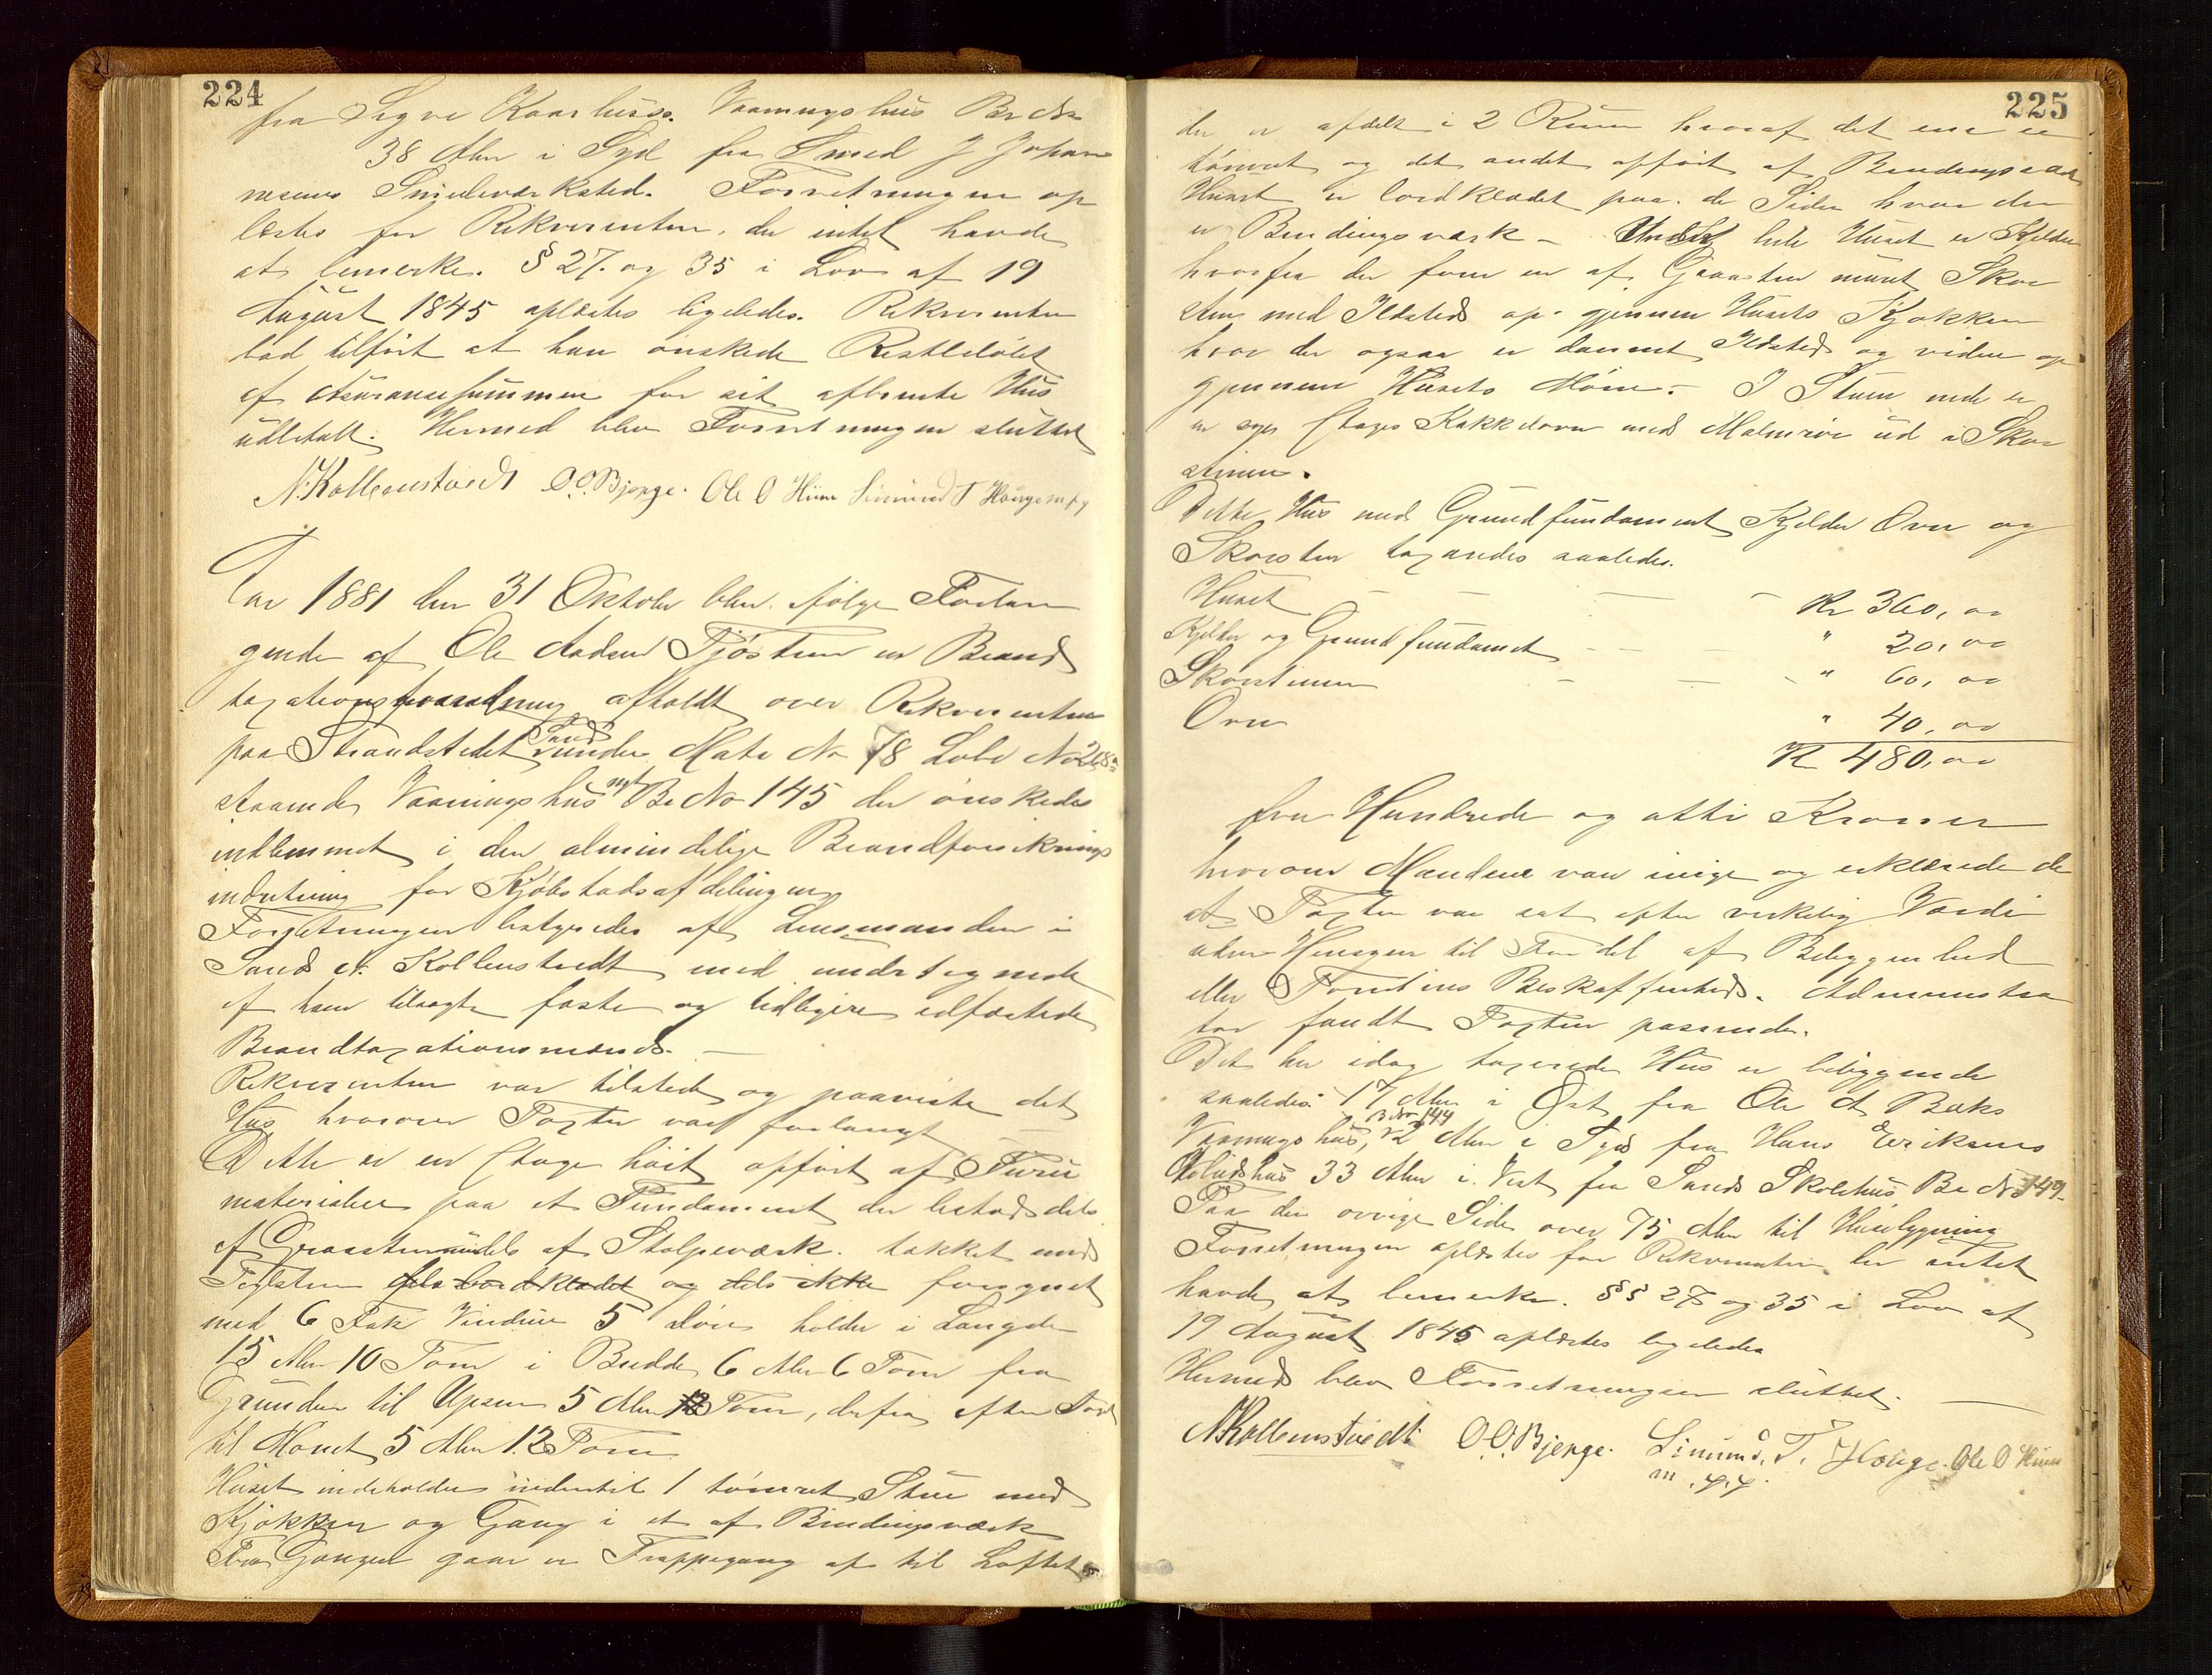 224
fra Sigve Kaarhuss. Vaaningshus Br No
38 Alen i Syd fra Smed J Johan
nesens Smedeværksted. Forretningen op
læstes for Rekvirenten, der intet havde
at bemerke. § 27. og 35 i Lov af 19
August 1845 oplæstes ligeledes. Rekvirenten
bad tilført at han ønskede Restbeløbet
af Assuransesummen for sit afbrente Hus
udbetalt. Hermed blev Forretningen sluttet
N. Kollenstvedt O.O. Bjerge. Ole O Hiim Simund T Houge m.f.p
Aar 1881 den 31 Oktober blev ifølge Forlan
gende af Ole Aadsen Tjøstem en Brand
taxationsforretning afholdt over Rekvirentens
paa Strandstedet Sand under Matr No 78 Løbe No 268a
staaende Vaaningshus nyt Br No 145 der ønskedes
indlemmet i den almindelige Brandforsikrings
indretning for Kjøbstadsafdelingen
Forretningen bestyredes af Lensmanden i
Sand N. Kollenstvedt med undertegnede
af ham tilsagte faste og tidligere edfæstede
Brandtaxationsmænd. —
Rekvirenten var tilstede og paaviste det
Hus hvorover Taxten var forlangt
Dette er en Etage høit opført af Furu
materialier paa et Fundament der bestod dels
af Graasten dels af Stolpeværk. takket med
Teglsten dels bordklædet og dels ikke forsynet
med 6 Fak Vinduer 5 Døre holder i Længde
15 Alen 10 Tom i Bredde 6 Alen 6 Tom fra
Grunden til Upsen 5 Alen 12 Tom, derfra efter Sør
til Mønet 5 Alen 12 Tom.
Huset indeholder indentil 1 tømret Stue med
Kjøkken og Gang i et af Bindingsværk
Fra Gangen gaar en Trappegang op til Loftet
225
der er afdelt i 2 Rum hvoraf det ene er
tømret og det andet opført af Bindingsværk
Huset er bordklædet paa de Sider hvor der
er Bindingsværk – Under hele Huset er Kjelder
hvorfra der fører en af Graasten muret Skor
sten med Ildsted op gjennem Husets Kjøkken
hvor der ogsaa er dannet Ildsted og videre op
gjennem Husets Møne. – I Stuen nede er
en Etages Kakkelovn med Malmrør ud i Skor
stenen.
Dette Hus med Grundfundament Kjelder Ovn og
Skorsten taxeredes saaledes.
Huset — — — Kr 360,00
Kjelder og Grundfundamet — — " 20,00
Skorstenen — — - " 60,00
Ovn " 40,00
Kr 480,00
fire Hundrede og otti Kroner
hvorom Mændene var enige og erklærede de
at Taxten var sat efter virkelig Værdi
uden Hensyn til Fordel af Beliggenhed
eller Tomtens Beskaffenhed. Administra
tor fandt Taxten passende.
Det her idag taxerede Hus er beliggende
saaledes: 17 Alen i Øst fra Ole A Baks
Vaaningshus, B No 144 12 Alen i Syd fra Hans Eriksens
Udhus 33 Alen i Vest fra Sands Skolehus Br No 149.
Paa den øvrige Side over 75 Alen til Husbygning
Forretningen oplæstes for Rekvirenten der intet
havde at bemerke. §§ 27 og 35 i Lov af
19 August 1845 oplæstes ligeledes
Hermed blev Forretningen sluttet. —
N Kollenstvedt O.O. Bjerge. Simund. T. Houge. Ole O Hiim
m.f.p.